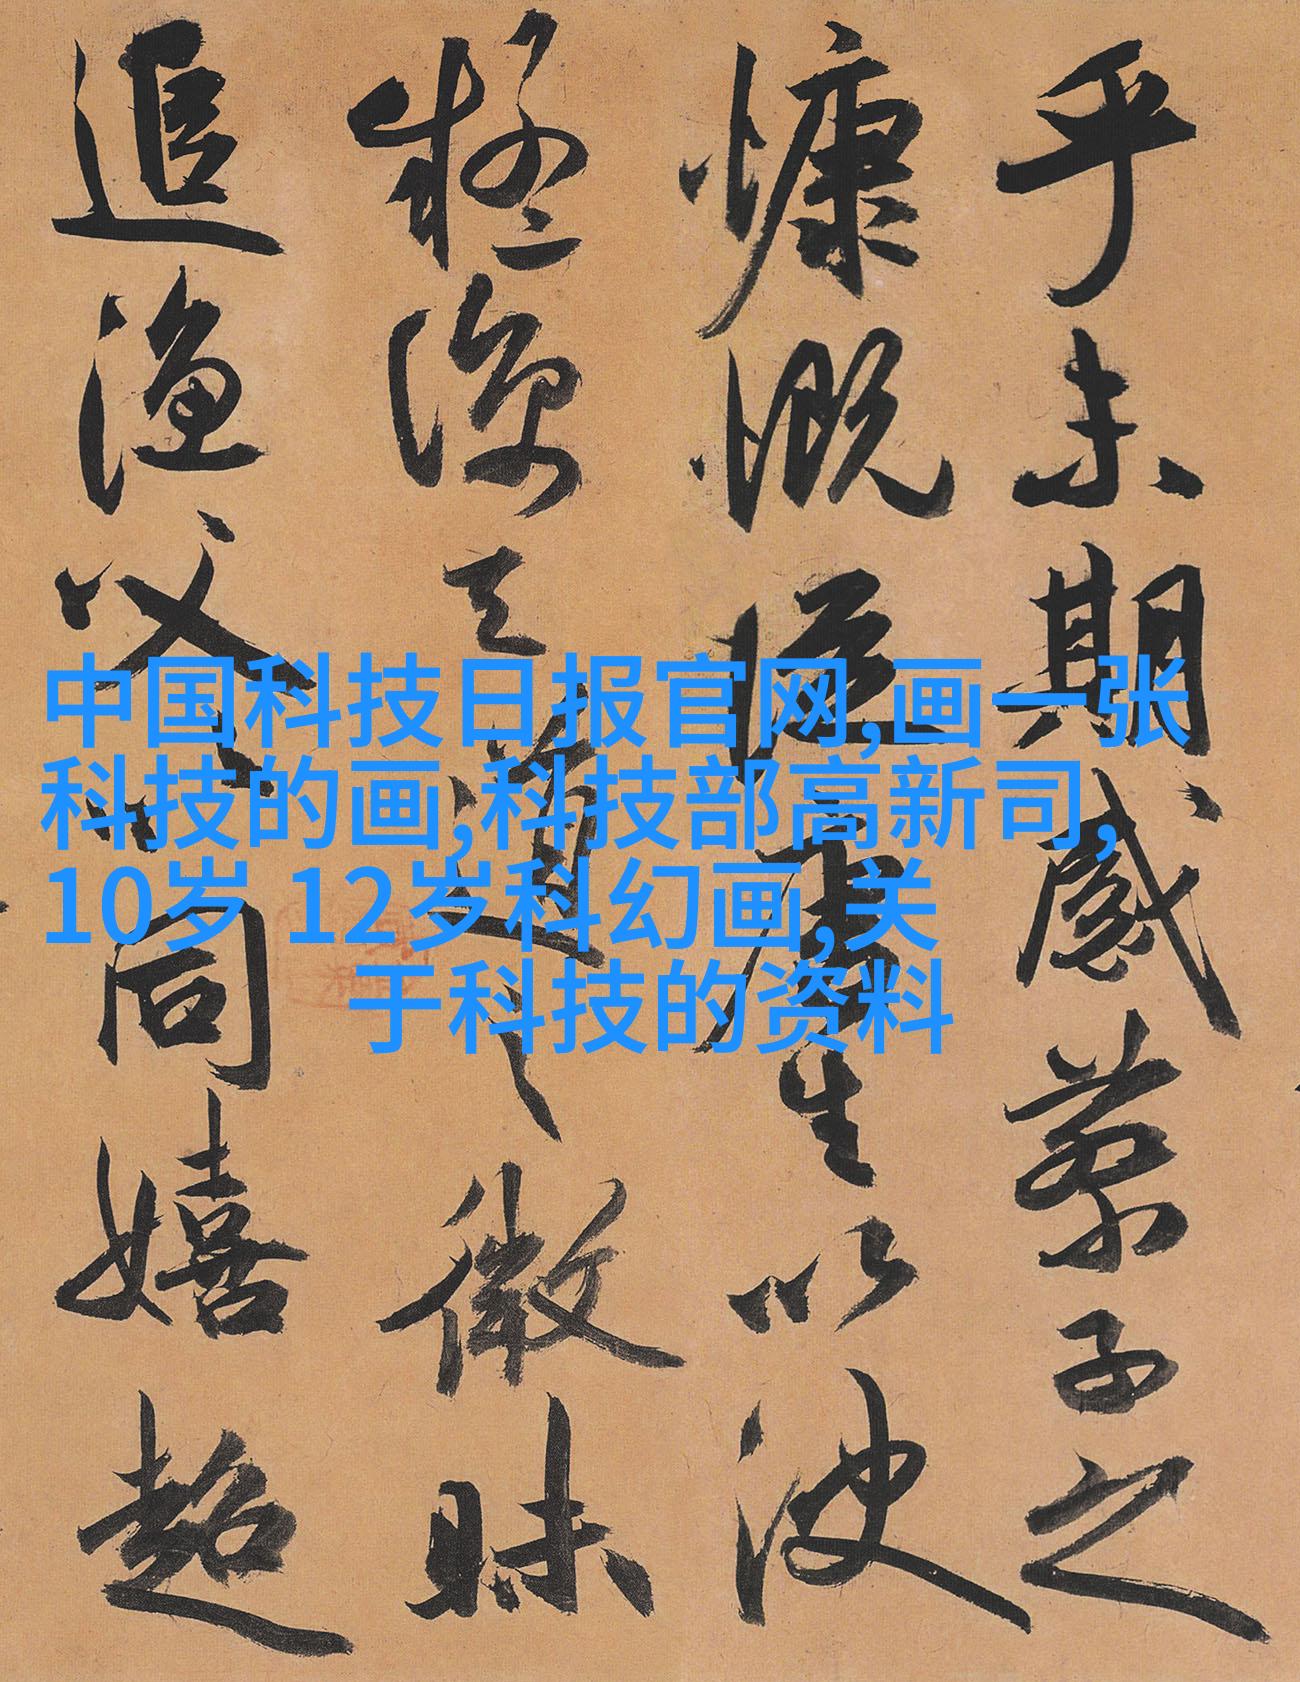 乎未期感蔡子之
慷慨從唐生以決
疑諒天道之微昧
追漁父以同嬉超
中国科技日报官网,画一张
科技的画,科技部高新司,
10岁 12岁科幻画,关
于科技的资料